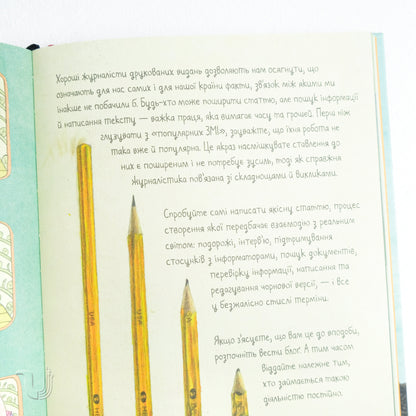 Хороші журналісти друкованих видань дозволяють нам осягнути, що
означають для нас самих і для нашої країни факти, зв'язок між якими ми
інакше не побачили б. Будь-хто може поширити статтю, але пошук інформації
й написання тексту — важка праця, яка вимагає часу та грошей. Перш ніж
глузувати з «популярних ЗМІ», зауважте, що їхня робота не
така вже й популярна. Це якраз насмішкувате ставлення до
них є поширеним і не потребує зусиль, тоді як справжня
журналістика пов'язана зі складнощами й викликами.
Спробуйте самі написати якісну статтю, процес
створення якої передбачає взаємодію з реальним
світом: подорожі, інтерв'ю, підтримування
стосунків з інформаторами, пошук документів,
перевірку інформації, написання та
редагування чорнової версії, — і все
у безжально стислі терміни.
Якщо з'ясуєте, що вам це до вподоби,
розпочніть вести блоґ. А тим часом
віддайте належне тим,
хто займається такою
діяльністю постійно.
USA
USA